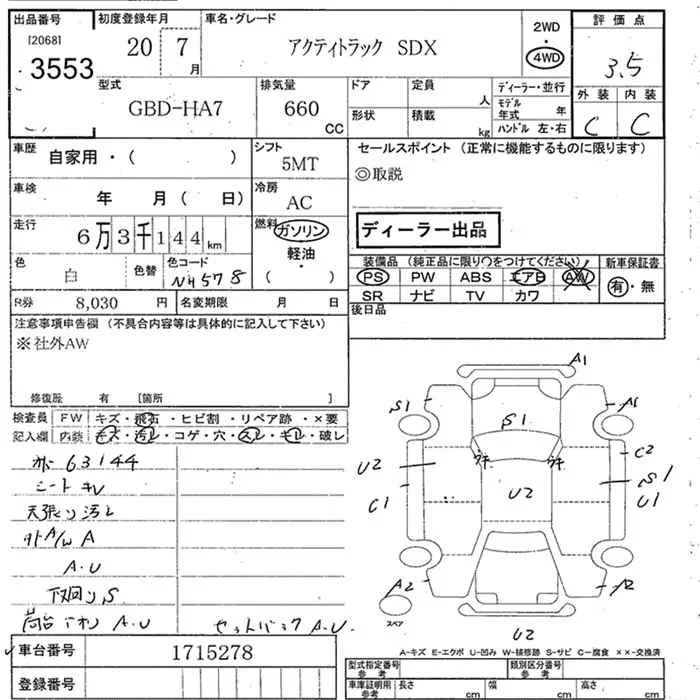 出品番号 初度登録年月 車名・グレード 評価点
[2068]
3553 20 7 月 アクティトラック SDX 2WD 4WD 3.5
型式 排気量 ドア 定員 人 ディーラー・並行 外装 内装
GBD-HA7 660 CC 形状 積載 kg モデル年式 年 C C
ハンドル 左・右
車歴 自家用・( ) シフト 5MT セールスポイント (正常に機能するものに限ります)
◎取説
車検 年 月( 日) 冷房 AC
走行 6万3千144km 燃料 ガソリン 軽油・( ) ディーラー出品
装備品 (純正品に限り○をつけてください) 新車保証書
色 白 色替 色コード NH578 PS PW ABS エアB AW 有・無
SR ナビ TV カワ
R券 8,030 円 名変期限 月 日 後日品
注意事項申告欄 (不具合内容等は具体的に記入して下さい)
※社外AW
修復歴 有 [箇所 ]
検査員 FW キズ・飛石・ヒビ割・リペア跡・×要
記入欄 内装 キズ・汚レ・コゲ・穴・スレ・キレ・破レ
63144
シート キレ
天張り汚レ
外A/W A
A.U
下回り.S
荷台アオリ A.U セットバック A.U.
A1
S1 S1 A1
U2 ウキ ウキ C2
S1
C1 U2 U1
A2 A2
スペア
U2
A-キズ E-エクボ U-凹み W-補修跡 S-サビ C-腐食 ××-交換済
車台番号 1715278
登録番号
型式指定番号 参考 類別区分番号 参考
車庫証明用 参考 長さ cm 幅 cm 高さ cm